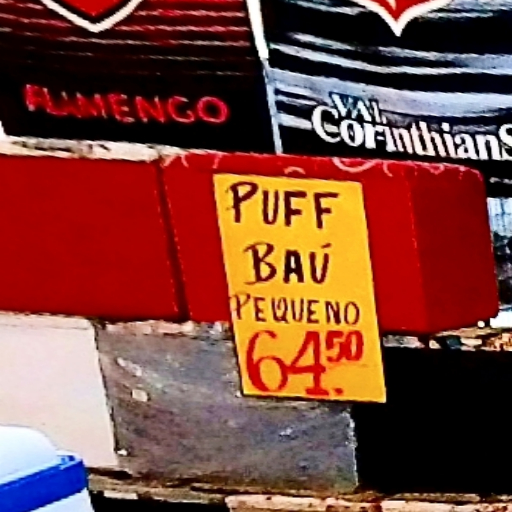 FLAMENGO
VAI
Corinthians
PUFF
BAÚ
PEQUENO
64.50